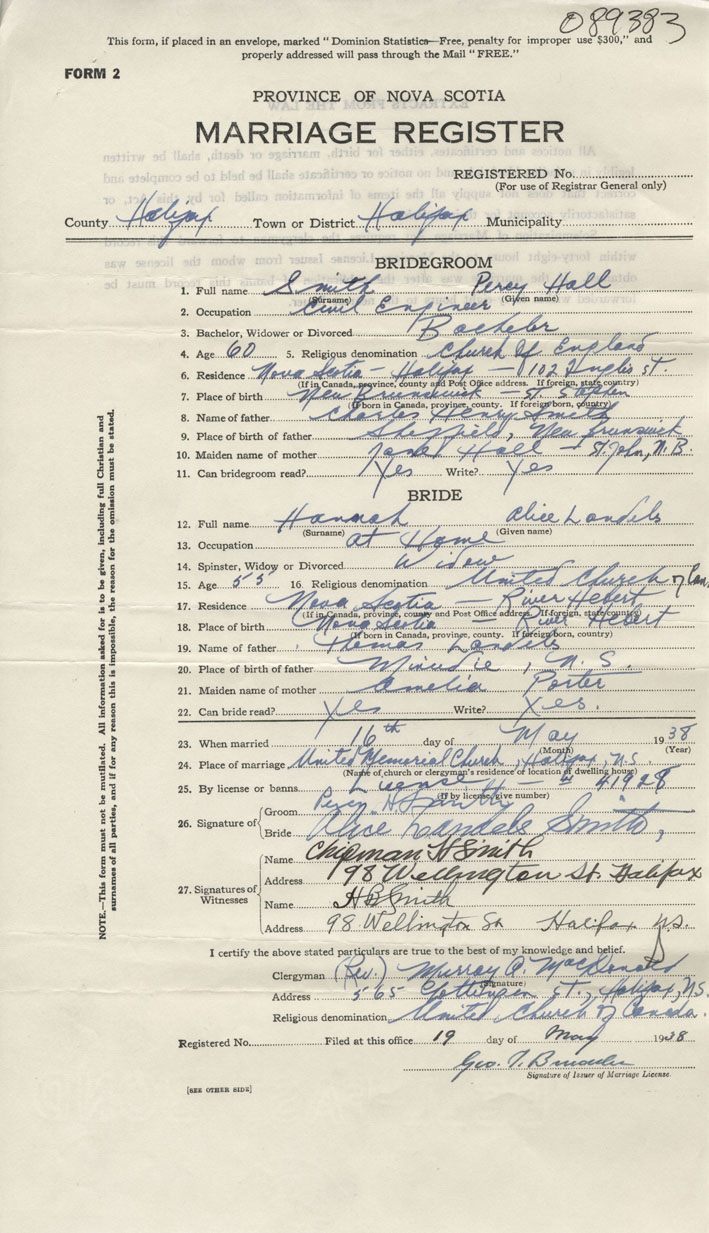 089383
This form, if placed in an envelope, marked "Dominion Statistics—Free, penalty for improper use $300," and
properly addressed will pass through the Mail "FREE."
FORM 2
PROVINCE OF NOVA SCOTIA
MARRIAGE REGISTER
REGISTERED No.
(For use of Registrar General only)
County Halifax Town or District Halifax Municipality
BRIDEGROOM
1. Full name Smith Percy Hall
(Surname) (Given name)
2. Occupation Civil Engineer
3. Bachelor, Widower or Divorced Bachelor
4. Age 60 5. Religious denomination Church of England
6. Residence Nova Scotia - Halifax - 102 Inglis st.
(If in Canada, province, county and Post Office address. If foreign, state country)
7. Place of birth New Brunswick - St. Stephen
(If born in Canada, province, county. If foreign born, country)
8. Name of father Charles Henry Smith
9. Place of birth of father Sheffield, New Brunswick
10. Maiden name of mother Hall - St. John, N.B.
11. Can bridegroom read? Yes Write? Yes
BRIDE
12. Full name Hannah Alice Landels
(Surname) (Given name)
13. Occupation at Home
14. Spinster, Widow or Divorced Widow
15. Age 55 16. Religious denomination United Church of Can.
17. Residence Nova Scotia - River Hebert
(If in Canada, province, county and Post Office address. If foreign, state country)
18. Place of birth Nova Scotia - River Hebert
(If born in Canada, province, county. If foreign born, country)
19. Name of father Thomas Landels
20. Place of birth of father Minudie, N.S.
21. Maiden name of mother Amelia Porter
22. Can bride read? Yes Write? Yes.
23. When married 16th day of May 1938
(Month) (Year)
24. Place of marriage United Memorial Church, Halifax, N.S.
(Name of church or clergyman's residence or location of dwelling house)
25. By license or banns License # 41928
(If by license, give number)
26. Signature of Groom Percy H Smith
Bride Alice Landels Smith,
27. Signatures of Witnesses
Name Chipman H Smith
Address 98 Wellington St. Halifax
Name H B Smith
Address 98 Wellington St Halifax N.S.
I certify the above stated particulars are true to the best of my knowledge and belief.
Clergyman (Rev.) Murray A. MacDonald
(Signature)
Address 565 Gottingen st., Halifax, N.S.
Religious denomination United Church of Canada.
Registered No. Filed at this office 19 day of May 1938
Geo. T.
Signature of Issuer of Marriage License.
[SEE OTHER SIDE]
NOTE.—This form must not be mutilated. All information asked for is to be given, including full Christian and
surnames of all parties, and if for any reason this is impossible, the reason for the omission must be stated.